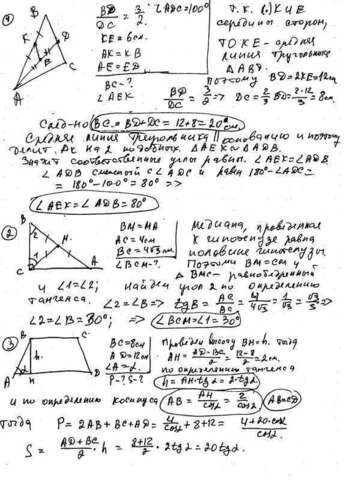 ① BD/DC = 3/2. ∠ADC=100°
KE=6см.
AK=KB
AE=ED
BC-?
∠AEK
B K D E C A
Т.К. (·) K и E
середины сторон,
ТО KE - средняя
линия треугольника
△ABD.
Поэтому BD=2KE=12см
BD/DC = 3/2 ⇒ DC = 2/3 BD = 2·12/3 = 8см.
След-но BC=BD+DC=12+8=20см
Средняя линия треугольника || основанию и поэтому
делит его на 2 подобных. △AEK∾△ADB.
Значит соответственные углы равны. ∠AEK=∠ADB
∠ADB смежный с ∠ADC и равен 180°-∠ADC=
=180°-100°=80° =>
∠AEK=∠ADB=80°
② B 2 M. 1 C A
BM=MA
AC=4см
BC=4√3см
∠BCM-?
Медиана, проведенная
к гипотенузе равна
половине гипотенузы
Поэтому BM=CM и
△BMC- равнобедренный
и ∠1=∠2; найдем угол 2 по определению
тангенса. ∠2=∠B=> tgB = AC/BC = 4/4√3 = 1/√3 = √3/3 =>
∠2=∠B=30°; => ∠BCM=∠1=30°
③ B C h. A H D
BC=8см
AD=12см
∠A=α
P-? S-?
Проведем высоту BH=h. тогда
AH = AD-BC/2 = 12-8/2 = 2см.
по определению тангенса
h=AH·tgα=2·tgα
и по определению косинуса AB = AH/cosα = 2/cosα AB=CD
тогда P=2AB+BC+AD = 4/cosα + 8+12 = 4+20·cosα/cosα.
S = AD+BC/2 · h = 8+12/2 · 2tgα = 20tgα.